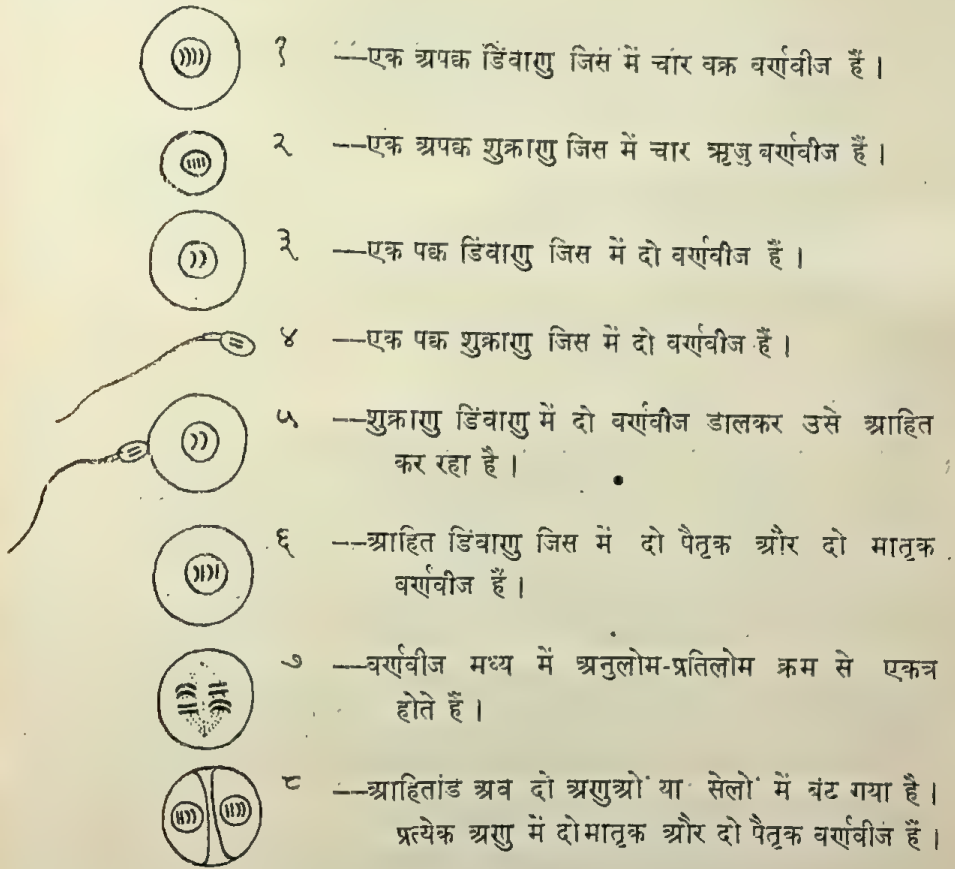 १ —एक अपक्क डिंवाणु जिस में चार वक्र वर्णवीज हैं।
२ —एक अपक्क शुक्राणु जिस में चार ऋजु वर्णवीज हैं।
३ —एक पक्क डिंवाणु जिस में दो वर्णवीज हैं।
४ —एक पक्क शुक्राणु जिस में दो वर्णवीज हैं।
५ —शुक्राणु डिंवाणु में दो वर्णवीज डालकर उसे आहित
कर रहा है।
६ —आहित डिंवाणु जिस में दो पैतृक और दो मातृक
वर्णवीज हैं।
७ —वर्णवीज मध्य में अनुलोम-प्रतिलोम क्रम से एकत्र
होते हैं।
८ —आहितांड अव दो अणुओं या सेलों में बंट गया है।
प्रत्येक अणु में दोमातृक और दो पैतृक वर्णवीज हैं।